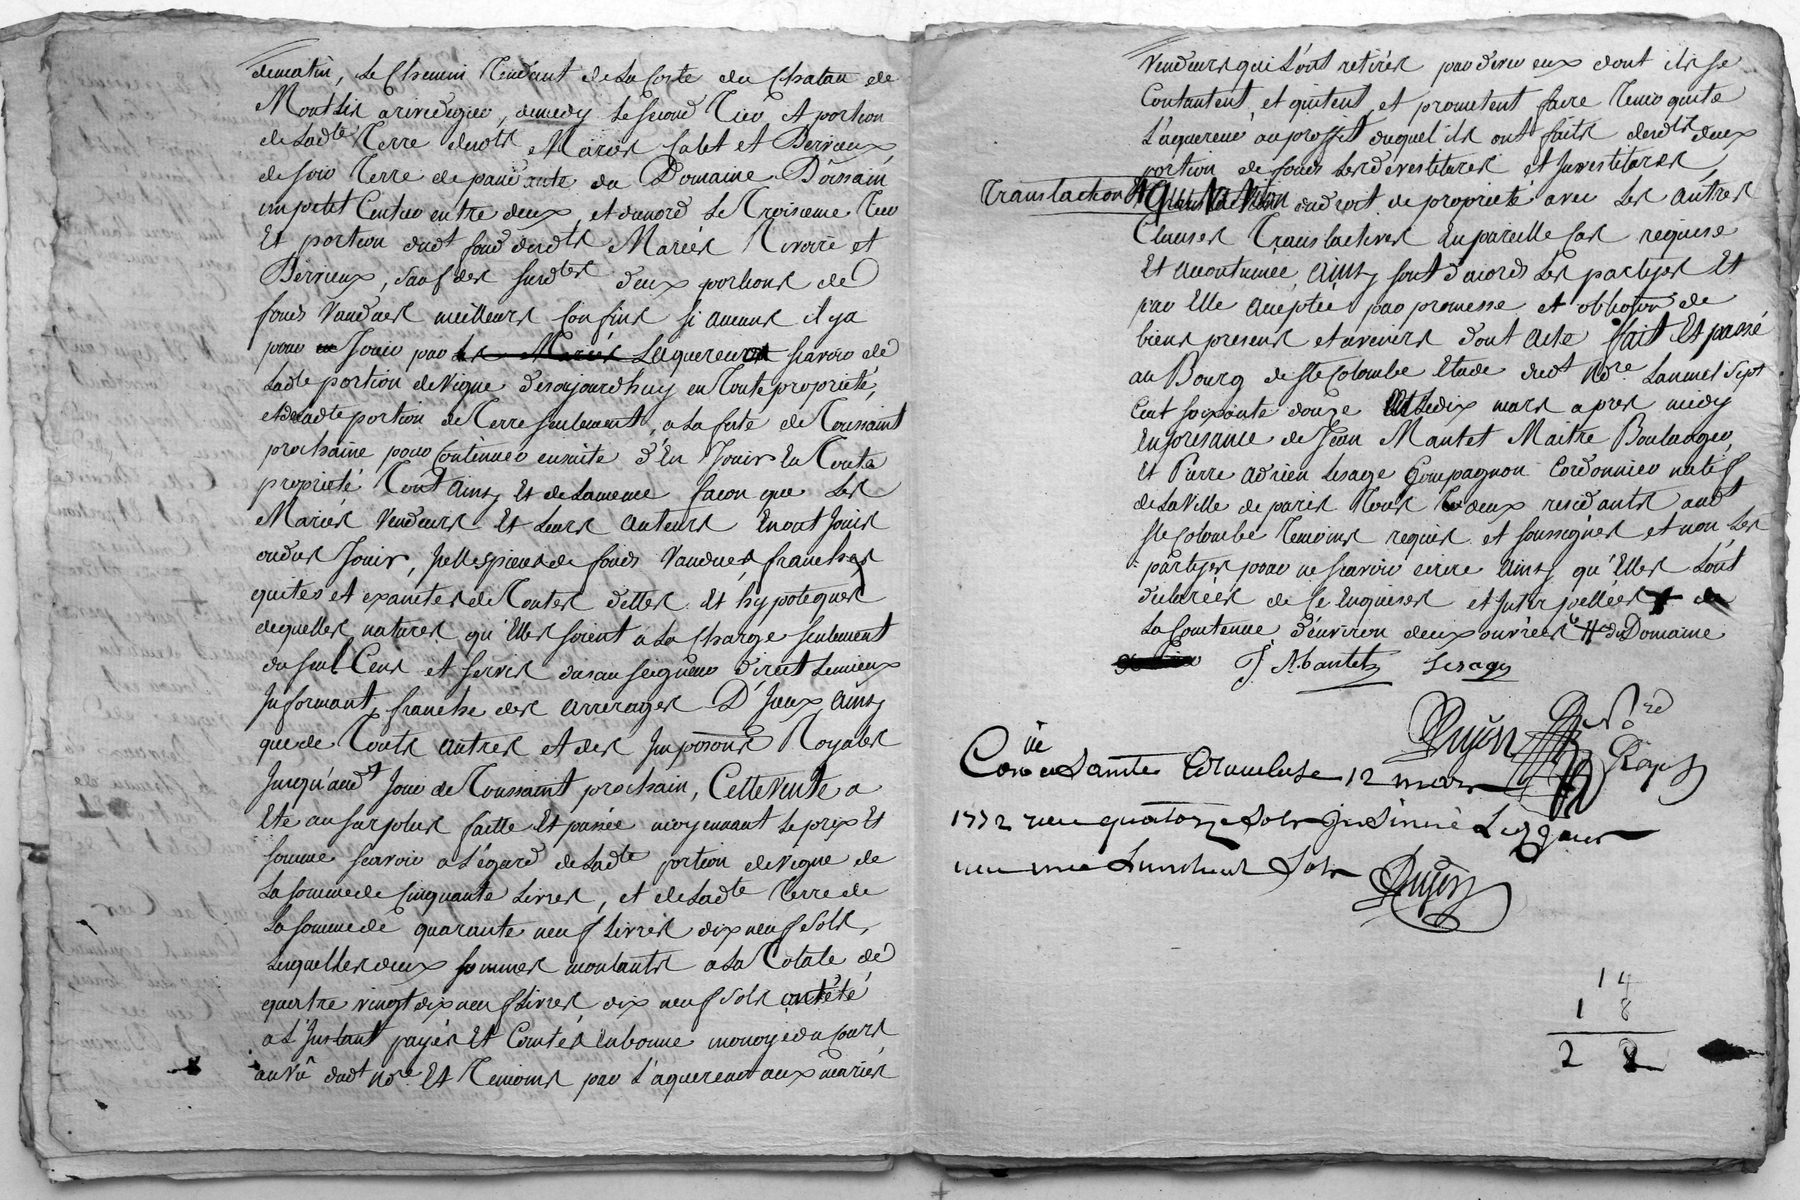 dematin, Le Chemin Tendant de La Coste du Chatau de
Montlis a rivedigier, demidy Le second Tier et portion
de Ladte Terre desdts Mariés Calet et Berrieux,
de soir Terre de pandante du Domaine Boissain
un petit Centier entre deux, et dunord Le Troisieme Tier
Et portion dudt fond desdts Mariés Rivoire et
Berrieux, sauf des susdtes deux portions de
fonds Vandues meilleurs Confins si aucuns il ya
pour en Jouir par L'aquereur scavoir de
Ladte portion de Vigne desaujourdhuy en Toute propriété,
et de Ladte portion de Terre seulement, a La fete de Toussaint
prochaine pour Continuer ensuite d'En Jouir En Toute
propriété Tout Ainsy Et de Lameme facon que Les
Mariés Vendeurs Et Leurs Auteurs En ont Joüis
ou dus Jouir, Jcelles pieces de fonds Vandues franches
quites et examtes de Toutes dettes Et hypoteques
dequelles natures qu'Elles soient a La Charge seulement
du seul Cens et servis du au seigneur Direct Lemieux
Jnformant, franche des Arrerages D'Jceux Ainsy
que de Touts Autres et des Jmpositions Royales
Jusqu'audt Jour de Toussaint prochain, Cette Vente a
Eté au surplus faitte Et passée moyennant Le prix Et
somme scavoir a L'égard de Ladte portion de Vigne de
La somme de Cinquante Livres, et de Ladte Terre de
La somme de quarante neuf Livres dix neuf sols,
Lesquelles deux sommes montants a La Totale de
quatre vingt dix neuf Livres dix neuf sols ont été
a L'Jnstant payés Et Comtés En bonne monoye du Cours
au Vû dudt Nore Et Temoins par L'aquereur aux mariés
Vendeurs qui L'ont retirés par devers eux dont ils se
Contantent et quitent, et prometent faire Tenir quite
L'aquereur au proffit duquel ils ont faits desdts deux
portion de fonds Les devestitures et Jnvestitures
Translaction du droit de proprieté avec Les Autres
Clauses Translactives En pareille Cas requise
Et Acoutumée, Ainsy sont d'acords Les partyes Et
par Elle Aceptée par promesse et obligation de
biens presens et avenirs dont Acte fait Et passé
au Bourg de Ste Colombe Etude dudt Nore Lanmil Sept
Cent soixante douze Le dix mars apres midy
En presance de Jean Mantet Maitre Boulanger,
Et Pierre Adrien Lesage Compagnon Cordonnier natif
de La Ville de paris Tous deux residants audt
Ste Colombe Temoins requis et soussignés et non Les
partyes pour ne scavoir ecrire Ainsy qu'Elles L'ont
declarées de Ce Enquises et Jnterpellées
La Contenue d'environ deux ouvrées # du Domaine
J. Mantet Lesage
Nore
Royal
Conlé a Sainte Colombe Le 12 mars
1772 reçu quatorze sols
reçu sols
14
1 8
2 2